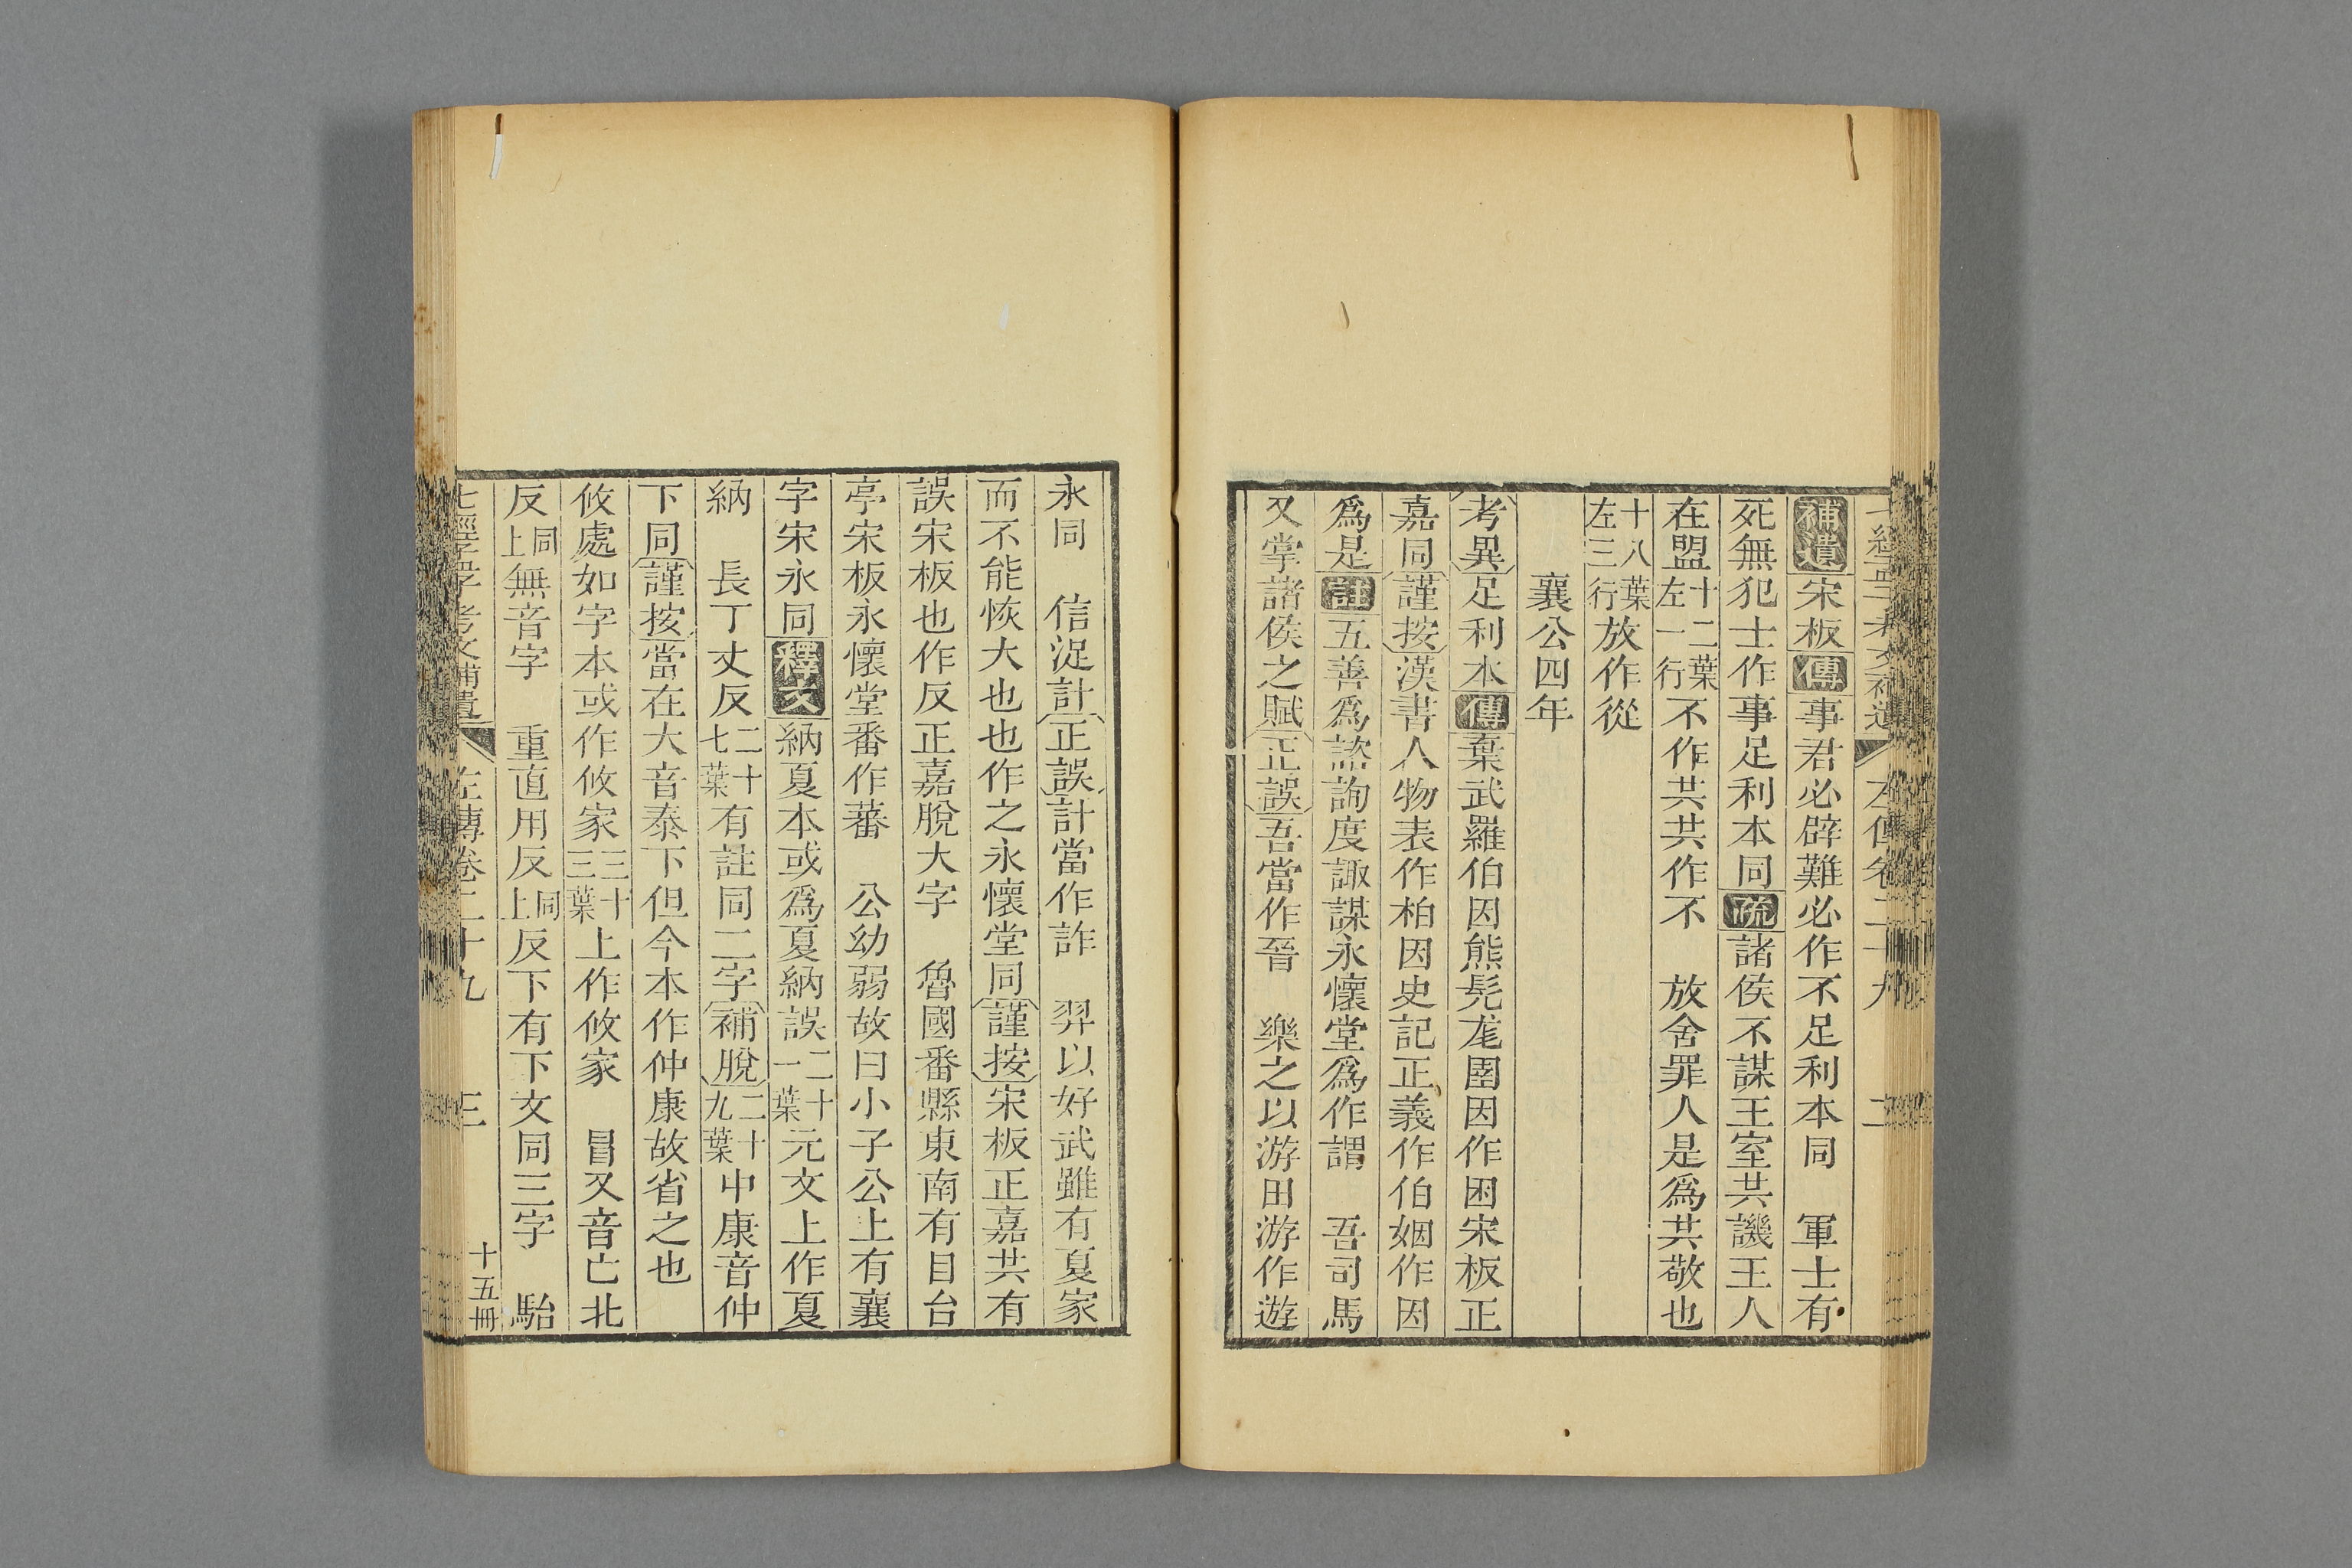 補遺宋板傳事君必辟難必作不足利本同　軍士有
死無犯士作事足利本同疏諸侯不謀王室共譏王人
在盟十二葉左一行不作共共作不　放舍罪人是爲共敬也
十八葉左三行放作從
襄公四年
考異足利本傳棄武羅伯因熊髡尨圉因作困宋板正
嘉同謹按漢書人物表作柏因史記正義作伯姻作因
爲是註五善爲諮詢度諏謀永懷堂爲作謂　吾司馬
又掌諸侯之賦正誤吾當作晉　樂之以游田游作遊
永同　信浞計正誤計當作詐　羿以好武雖有夏家
而不能恢大也也作之永懷堂同謹按宋板正嘉共有
誤宋板也作反正嘉脫大字　魯國番縣東南有目台
亭宋板永懷堂番作蕃　公幼弱故曰小子公上有襄
字宋永同釋文納夏本或爲夏納誤二十一葉元文上作夏
納　長丁丈反二十七葉有註同二字補脫二十九葉中康音仲
下同謹按當在大音泰下但今本作仲康故省之也
攸處如字本或作攸家三十三葉上作攸家　冒又音亡北
反同上無音字　重直用反同上反下有下文同三字　駘
七經孟子考文補遺　左傳卷二十九　三　十五冊